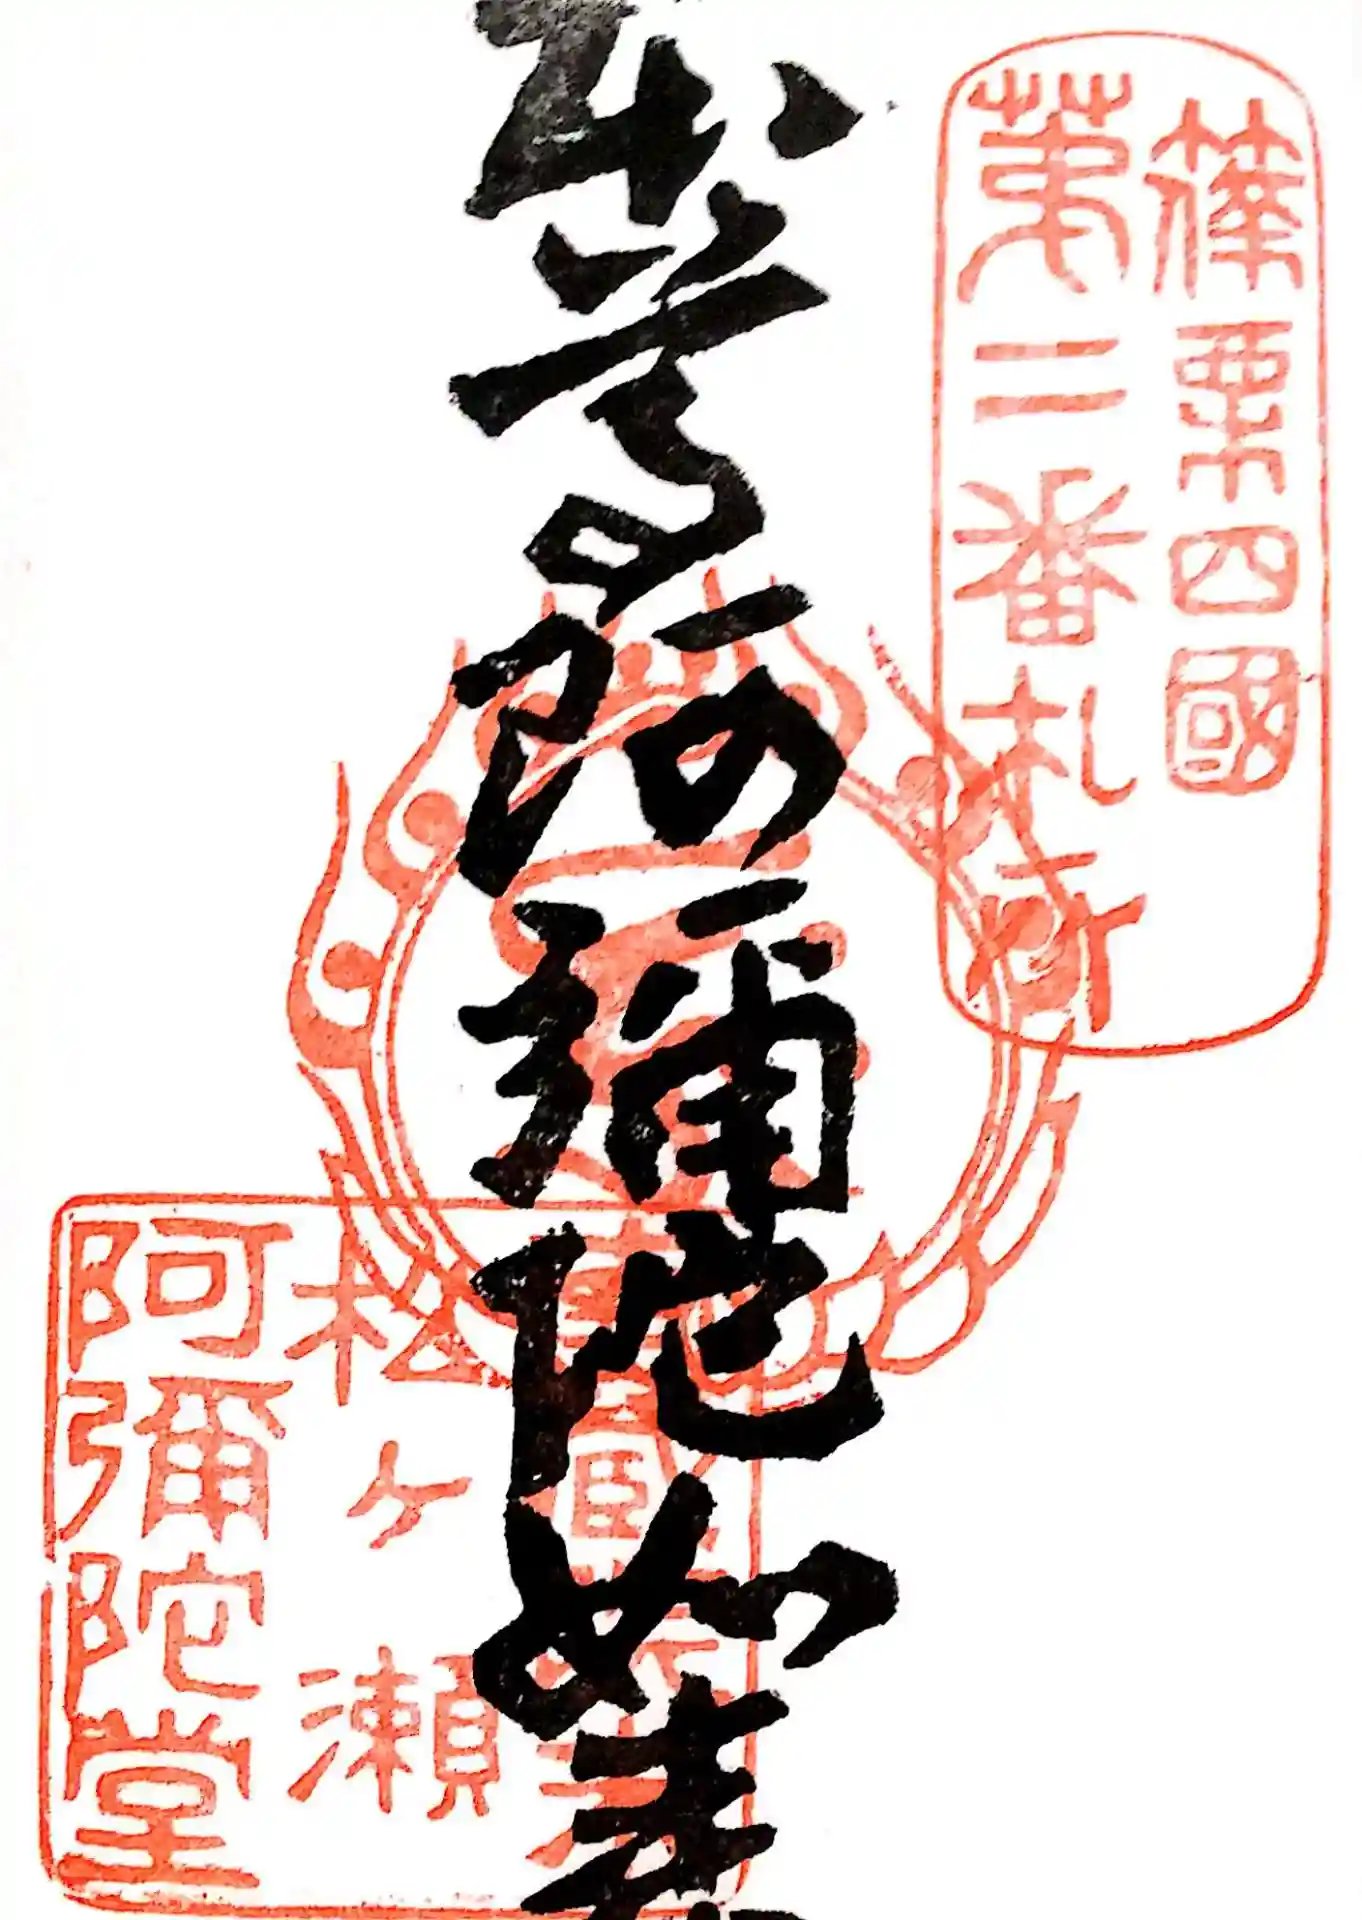 篠栗四國
第二番札所
本尊阿弥陀如来
松ヶ瀬
阿彌陀堂